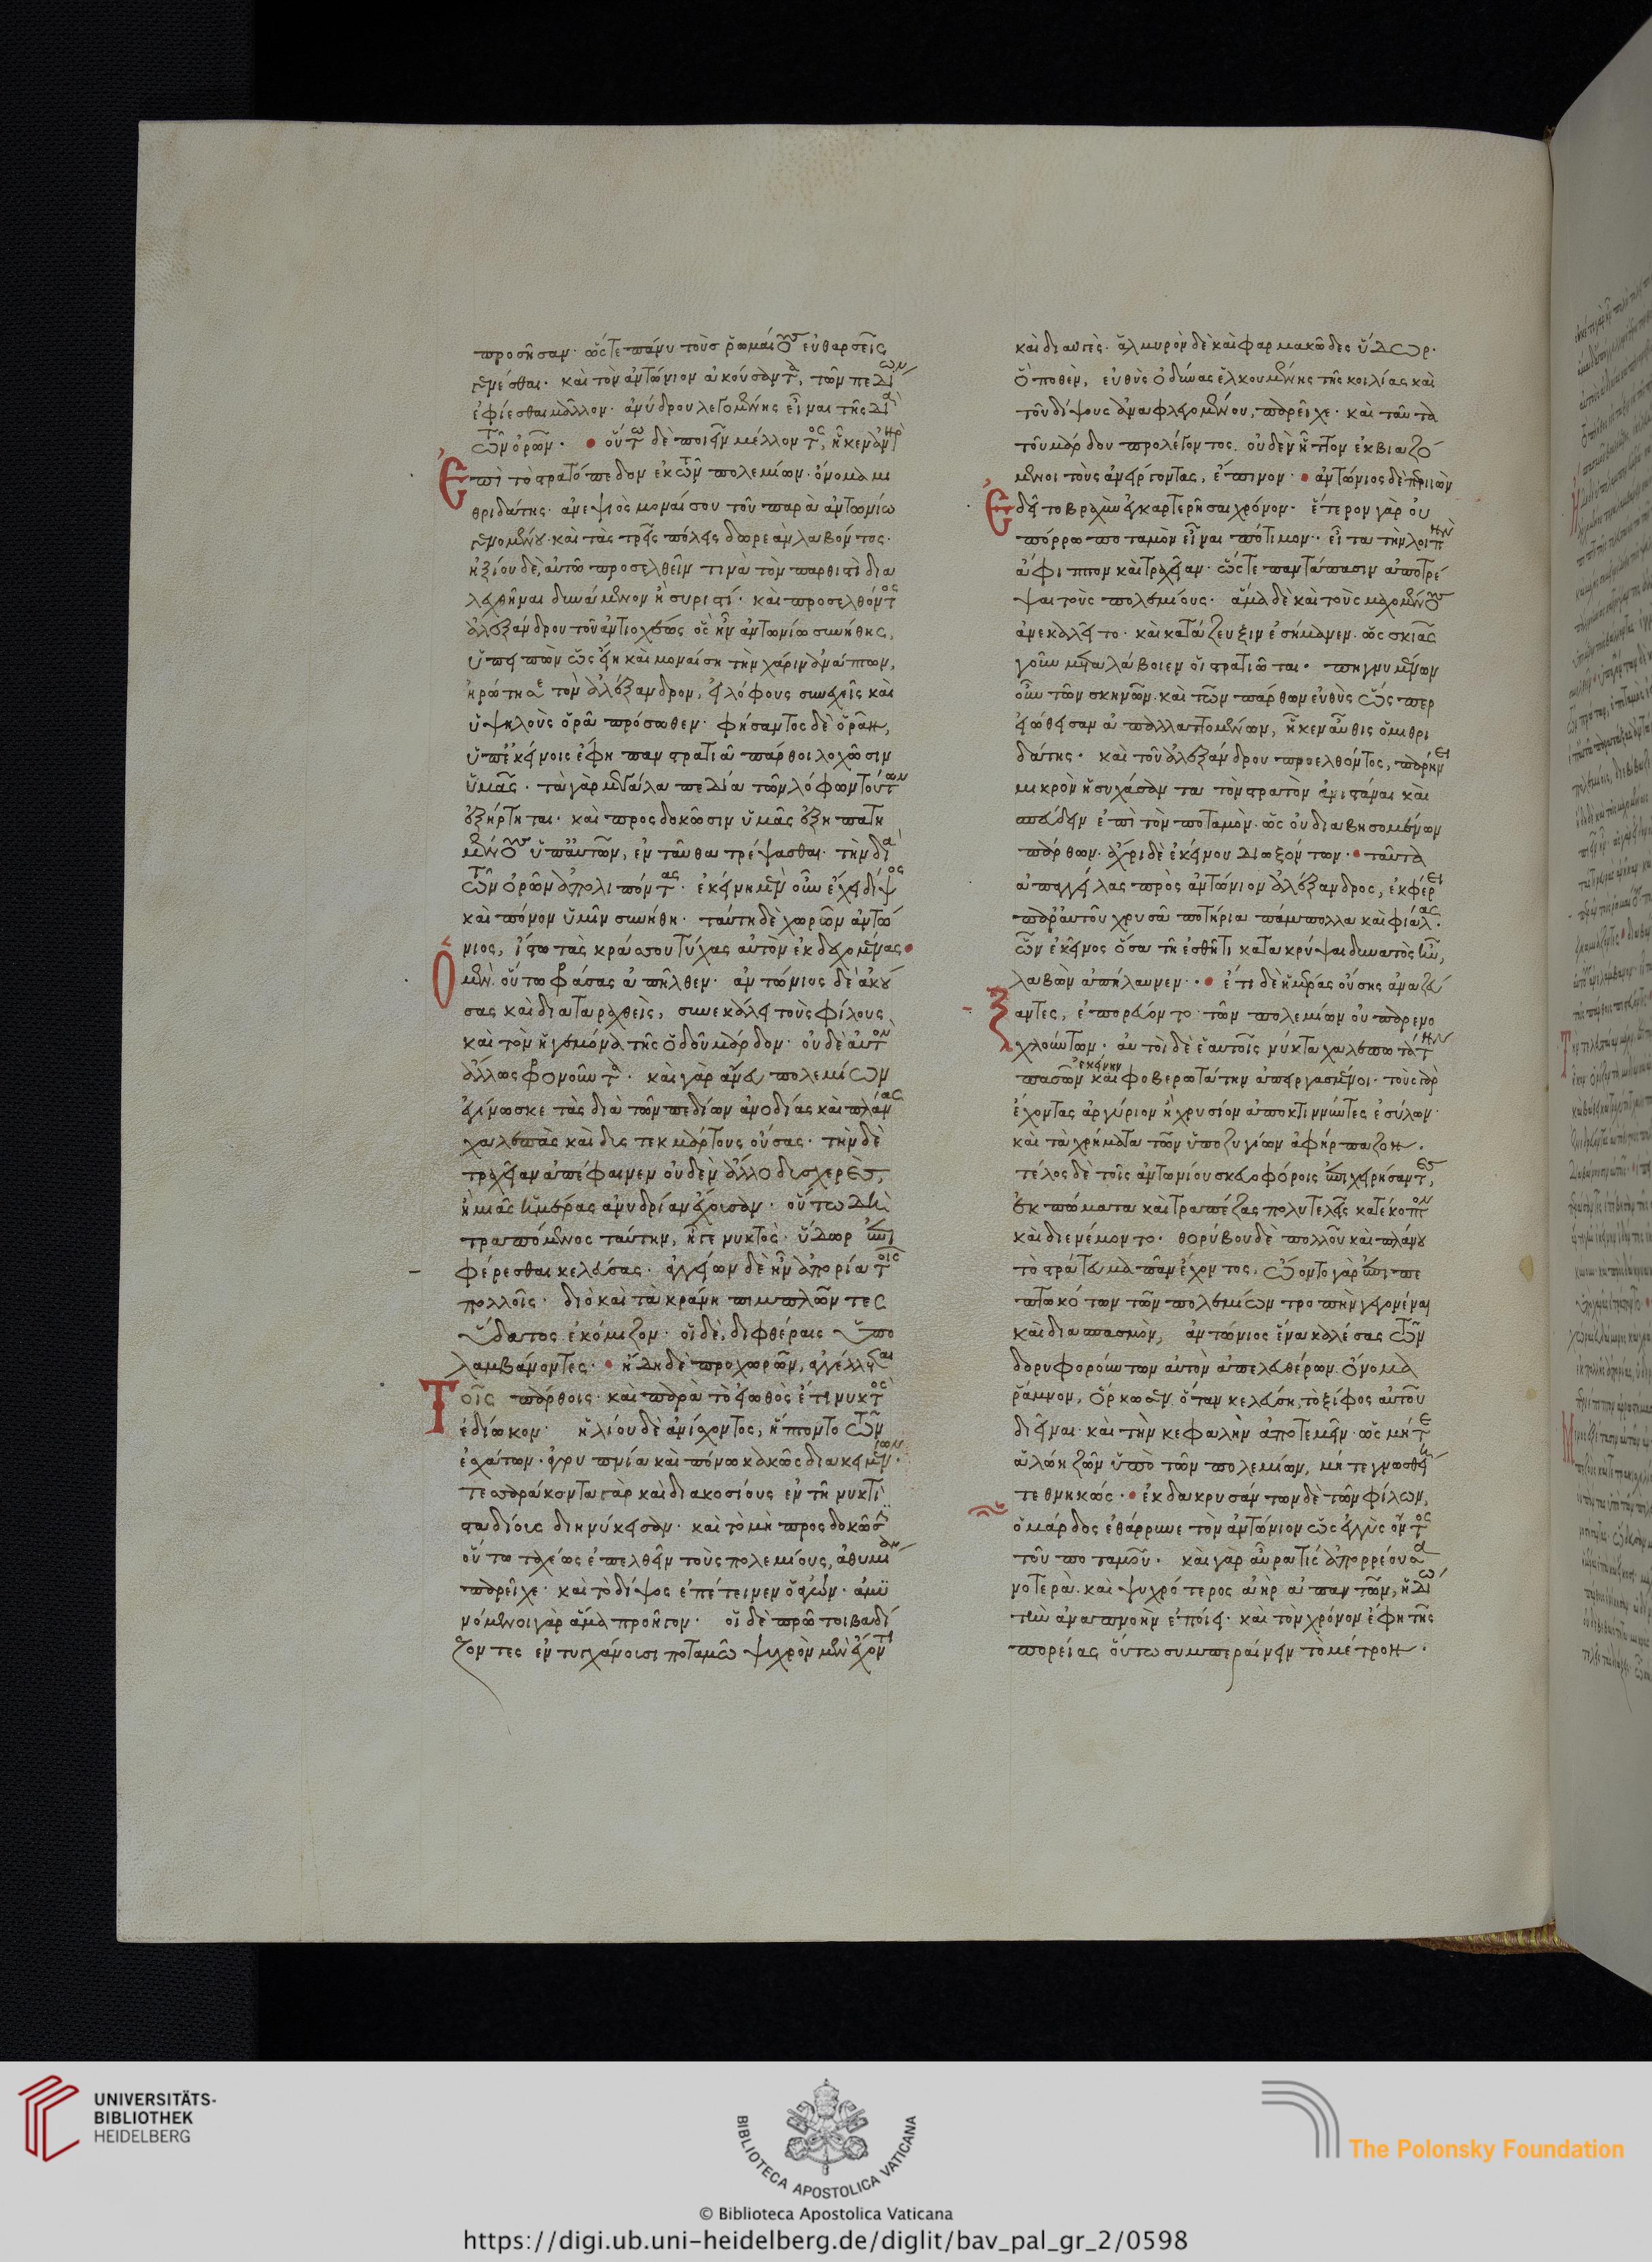 προσῆσαν· ὥστε πάνυ τοὺς ῥωμαίους εὐθαρσεῖς
γενέσθαι· καὶ τὸν ἀντώνιον ἀκούσαντα, τῶν πεδίων
ἐφίεσθαι μᾶλλον· ἀνύδρου λεγομένης εἶναι τῆς διὰ
τῶν ὀρῶν· οὕτω δὲ ποιεῖν μέλλοντος, ἧκεν ἀνὴρ
Ἐπὶ τὸ στρατόπεδον ἐκ τῶν πολεμίων· ὄνομα μι
θριδάτης· ἀνεψιὸς μοναίσου τοῦ παρὰ ἀντωνίω
γενομένου· καὶ τὰς τρεῖς πόλεις δωρεὰν λαβόντος·
ἠξίου δὲ, αὐτῶ προσελθεῖν τινὰ τὸν παρθιστὶ δια
λεχθῆναι δυνάμενον ἢ συριστί· καὶ προσελθόντος
ἀλεξάνδρου τοῦ ἀντιοχέως ὃς ἦν ἀντωνίω συνήθης,
ὑπειπὼν ὡς εἴη καὶ μοναίση τὴν χάριν ἀνάπτων,
ἠρώτησε τὸν ἀλέξανδρον, εἰ λόφους συνεχεῖς καὶ
ὑψηλοὺς ὁρᾶ πρόσωθεν· φήσαντος δὲ ὁρᾶν,
ὑπ' ἐκείνοις ἔφη πανστρατιᾶ πάρθοι λοχῶσιν
ὑμᾶς· τὰ γὰρ μεγάλα πεδία τῶν λόφων τούτων
ἐξήρτηται· καὶ προσδοκῶσιν ὑμᾶς ἐξηπατη
μένους ὑπ' αὐτῶν, ἐνταῦθα τρέψασθαι· τὴν διὰ
τῶν ὀρῶν ἀπολιπόντας· ἐκείνη μὲν οὖν ἔχει δίψος
καὶ πόνον ὑμῖν συνήθη· ταύτη δὲ χωρῶν ἀντώ
νιος, ἴστω τὰς κράσσου τύχας αὐτὸν ἐκδεχομένας
Ὁ μὲν οὕτω φράσας ἀπῆλθεν· ἀντώνιος δὲ ἀκού
σας καὶ διαταραχθεὶς, συνεκάλει τοὺς φίλους
καὶ τὸν ἡγεμόνα τῆς ὁδοῦ μάρδον· οὐδὲ αὐτὸν
ἄλλως φρονοῦντα· καὶ γὰρ ἄνευ πολεμίων
ἐγίνωσκε τὰς διὰ τῶν πεδίων ἀνοδίας καὶ πλάνας
χαλεπὰς καὶ δυστεκμάρτους οὔσας· τὴν δὲ
τραχεῖαν ἀπέφαινεν οὐδὲν ἄλλο δυσχερὲς,
ἢ μιᾶς ἡμέρας ἀνυδρίαν ἔχουσαν· οὕτω δὴ
τραπόμενος ταύτην, ἦγε νυκτὸς· ὕδωρ ἐπι
φέρεσθαι κελεύσας· ἀγγείων δὲ ἦν ἀπορία τοῖς
πολλοῖς· διὸ καὶ τὰ κράνη πιμπλῶντες
ὕδατος ἐκόμιζον· οἱ δὲ, διφθέραις ὑπο
λαμβάνοντες· ἤδη δὲ προχωρῶν, ἀγγέλλεται
Τοῖς πάρθοις· καὶ παρὰ τὸ εἰωθὸς ἔτι νυκτὸς
ἐδίωκον· ἡλίου δὲ ἀνίσχοντος, ἥπτοντο τῶν
ἐσχάτων· ἀγρυπνία καὶ πόνω κακῶς διακειμένων·
τεσσαράκοντα γὰρ καὶ διακοσίους ἐν τῆ νυκτὶ
σταδίους διηνύκεσαν· καὶ τὸ μὴ προσδοκῶσι
οὕτω ταχέως ἐπελθεῖν τοὺς πολεμίους, ἀθυμίαν
παρεῖχε· καὶ τὸ δίψος ἐπέτεινεν ὁ ἀγών· ἀμυ
νόμενοι γὰρ ἅμα προῆγον· οἱ δὲ πρῶτοι βαδί
ζοντες ἐντυγχάνουσι ποταμῶ ψυχρὸν μὲν ἔχοντι
καὶ διαυγὲς· ἁλμυρὸν δὲ καὶ φαρμακῶδες ὕδωρ·
ὃ ποθὲν, εὐθὺς ὀδύνας ἑλκουμένης τῆς κοιλίας καὶ
τοῦ δίψους ἀναφλεγομένου, παρεῖχε· καὶ ταῦτα
τοῦ μάρδου προλέγοντος. οὐδὲν ἧττον ἐκβιαζό
μενοι τοὺς ἀνείργοντας, ἔπινον· ἀντώνιος δὲ περιιὼν
Ἐδεῖτο βραχὺν ἐγκαρτερῆσαι χρόνον· ἕτερον γὰρ οὐ
πόρρω ποταμὸν εἶναι πότιμον· εἶτα τὴν λοιπὴν
ἄφιππον καὶ τραχεῖαν· ὥστε παντάπασιν ἀποτρέ
ψαι τοὺς πολεμίους· ἅμα δὲ καὶ τοὺς μαχομένους
ἀνεκαλεῖτο· καὶ κατάζευξιν ἐσήμανεν· ὡς σκιᾶς
γοῦν μεταλάβοιεν οἱ στρατιῶται· πηγνυμένων
οὖν τῶν σκηνῶν· καὶ τῶν πάρθων εὐθὺς ὥσπερ
εἰώθεσαν ἀπαλλαττομένων, ἧκεν αὖθις ὁ μιθρι
δάτης· καὶ τοῦ ἀλεξάνδρου προελθόντος, παρήνει
μικρὸν ἡσυχάσαντα τὸν στρατὸν ἀνιστάναι καὶ
σπεύδειν ἐπὶ τὸν ποταμὸν· ὡς οὐ διαβησομένων
πάρθων· ἄχρι δὲ ἐκείνου διωξόντων· ταῦτα
ἀπαγγείλας πρὸς ἀντώνιον ἀλέξανδρος, ἐκφέρει
παρ' αὐτοῦ χρυσᾶ ποτήρια πάμπολλα καὶ φιάλας·
ὧν ἐκεῖνος ὅσα τῆ ἐσθῆτι κατακρύψαι δυνατὸς ἦν,
λαβὼν ἀπήλαυνεν· ἔτι δὲ ἡμέρας οὔσης ἀναζεύ
ξαντες, ἐπορεύοντο· τῶν πολεμίων οὐ παρενο
χλούντων· αὐτοὶ δὲ ἑαυτοῖς νύκτα χαλεπωτάτην
πασῶν ἐκείνην καὶ φοβερωτάτην ἀπεργασμένοι· τοὺς γὰρ
ἔχοντας ἀργύριον ἢ χρυσίον ἀποκτιννύντες ἐσύλων·
καὶ τὰ χρήματα τῶν ὑποζυγίων ἀφήρπαζον·
τέλος δὲ τοῖς ἀντωνίου σκευοφόροις ἐπιχειρήσαντες,
ἐκπώματα καὶ τραπέζας πολυτελεῖς κατέκοπτον
καὶ διενέμοντο· θορύβου δὲ πολλοῦ καὶ πλάνου
τὸ στράτευμα πᾶν ἔχοντος, ὤοντο γὰρ ἐπιπε
πτωκότων τῶν πολεμίων τροπὴν γεγονέναι
καὶ διασπασμὸν, ἀντώνιος ἕνα καλέσας τῶν
δορυφορούντων αὐτὸν ἀπελευθέρων· ὄνομα
ῥάμνον, ὥρκωσεν ὅταν κελεύση, τὸ ξίφος αὐτοῦ
διεῖναι· καὶ τὴν κεφαλὴν ἀποτεμεῖν· ὡς μήτε
ἁλώη ζῶν ὑπὸ τῶν πολεμίων, μήτε γνωσθείη
τεθνηκώς· ἐκδακρυσάντων δὲ τῶν φίλων,
ὁ μάρδος ἐθάρρυνε τὸν ἀντώνιον ὡς ἐγγὺς ὄντος
τοῦ ποταμοῦ· καὶ γὰρ αὔρα τὶς ἀπορρέουσα
νοτερὰ· καὶ ψυχρότερος ἀὴρ ἀπαντῶν, ἡδίω
τὴν ἀναπνοὴν ἐποίει· καὶ τὸν χρόνον ἔφη τῆς
πορείας οὕτω συμπεραίνειν τὸ μέτρον·
UNIVERSITÄTS-
BIBLIOTHEK
HEIDELBERG
BIBLIOTECA APOSTOLICA VATICANA
The Polonsky Foundation
© Biblioteca Apostolica Vaticana
https://digi.ub.uni-heidelberg.de/diglit/bav_pal_gr_2/0598